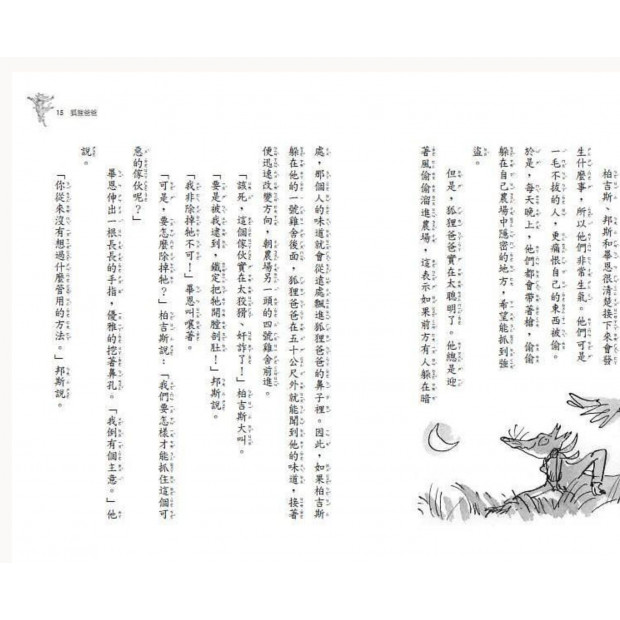 15 狐狸爸爸
柏吉斯、邦斯和畢恩很清楚接下來會發
生什麼事，所以他們非常生氣。他們可是
一毛不拔的人，更痛恨自己的東西被偷。
於是，每天晚上，他們都會帶著槍，偷偷
躲在自己農場中隱密的地方，希望能抓到強
盜。
但是，狐狸爸爸實在太聰明了。他總是迎
著風偷偷溜進農場，這表示如果前方有人躲在暗
處，那個人的味道就會從遠處飄進狐狸爸爸的鼻子裡。因此，如果柏吉斯
躲在他的一號雞舍後面，狐狸爸爸在五十公尺外就能聞到他的味道，接著
便迅速改變方向，朝農場另一頭的四號雞舍前進。
「該死，這個傢伙實在太狡猾、奸詐了！」柏吉斯大叫。
「要是被我逮到，鐵定把牠開膛剖肚！」邦斯說。
「我非除掉牠不可！」畢恩叫嚷著。
「可是，要怎麼除掉牠？」柏吉斯說：「我們要怎樣才能抓住這個可
惡的傢伙呢？」
畢恩伸出一根長長的手指，優雅的挖著鼻孔。「我倒有個主意。」他
說。
「你從來沒有想過什麼管用的方法。」邦斯說。